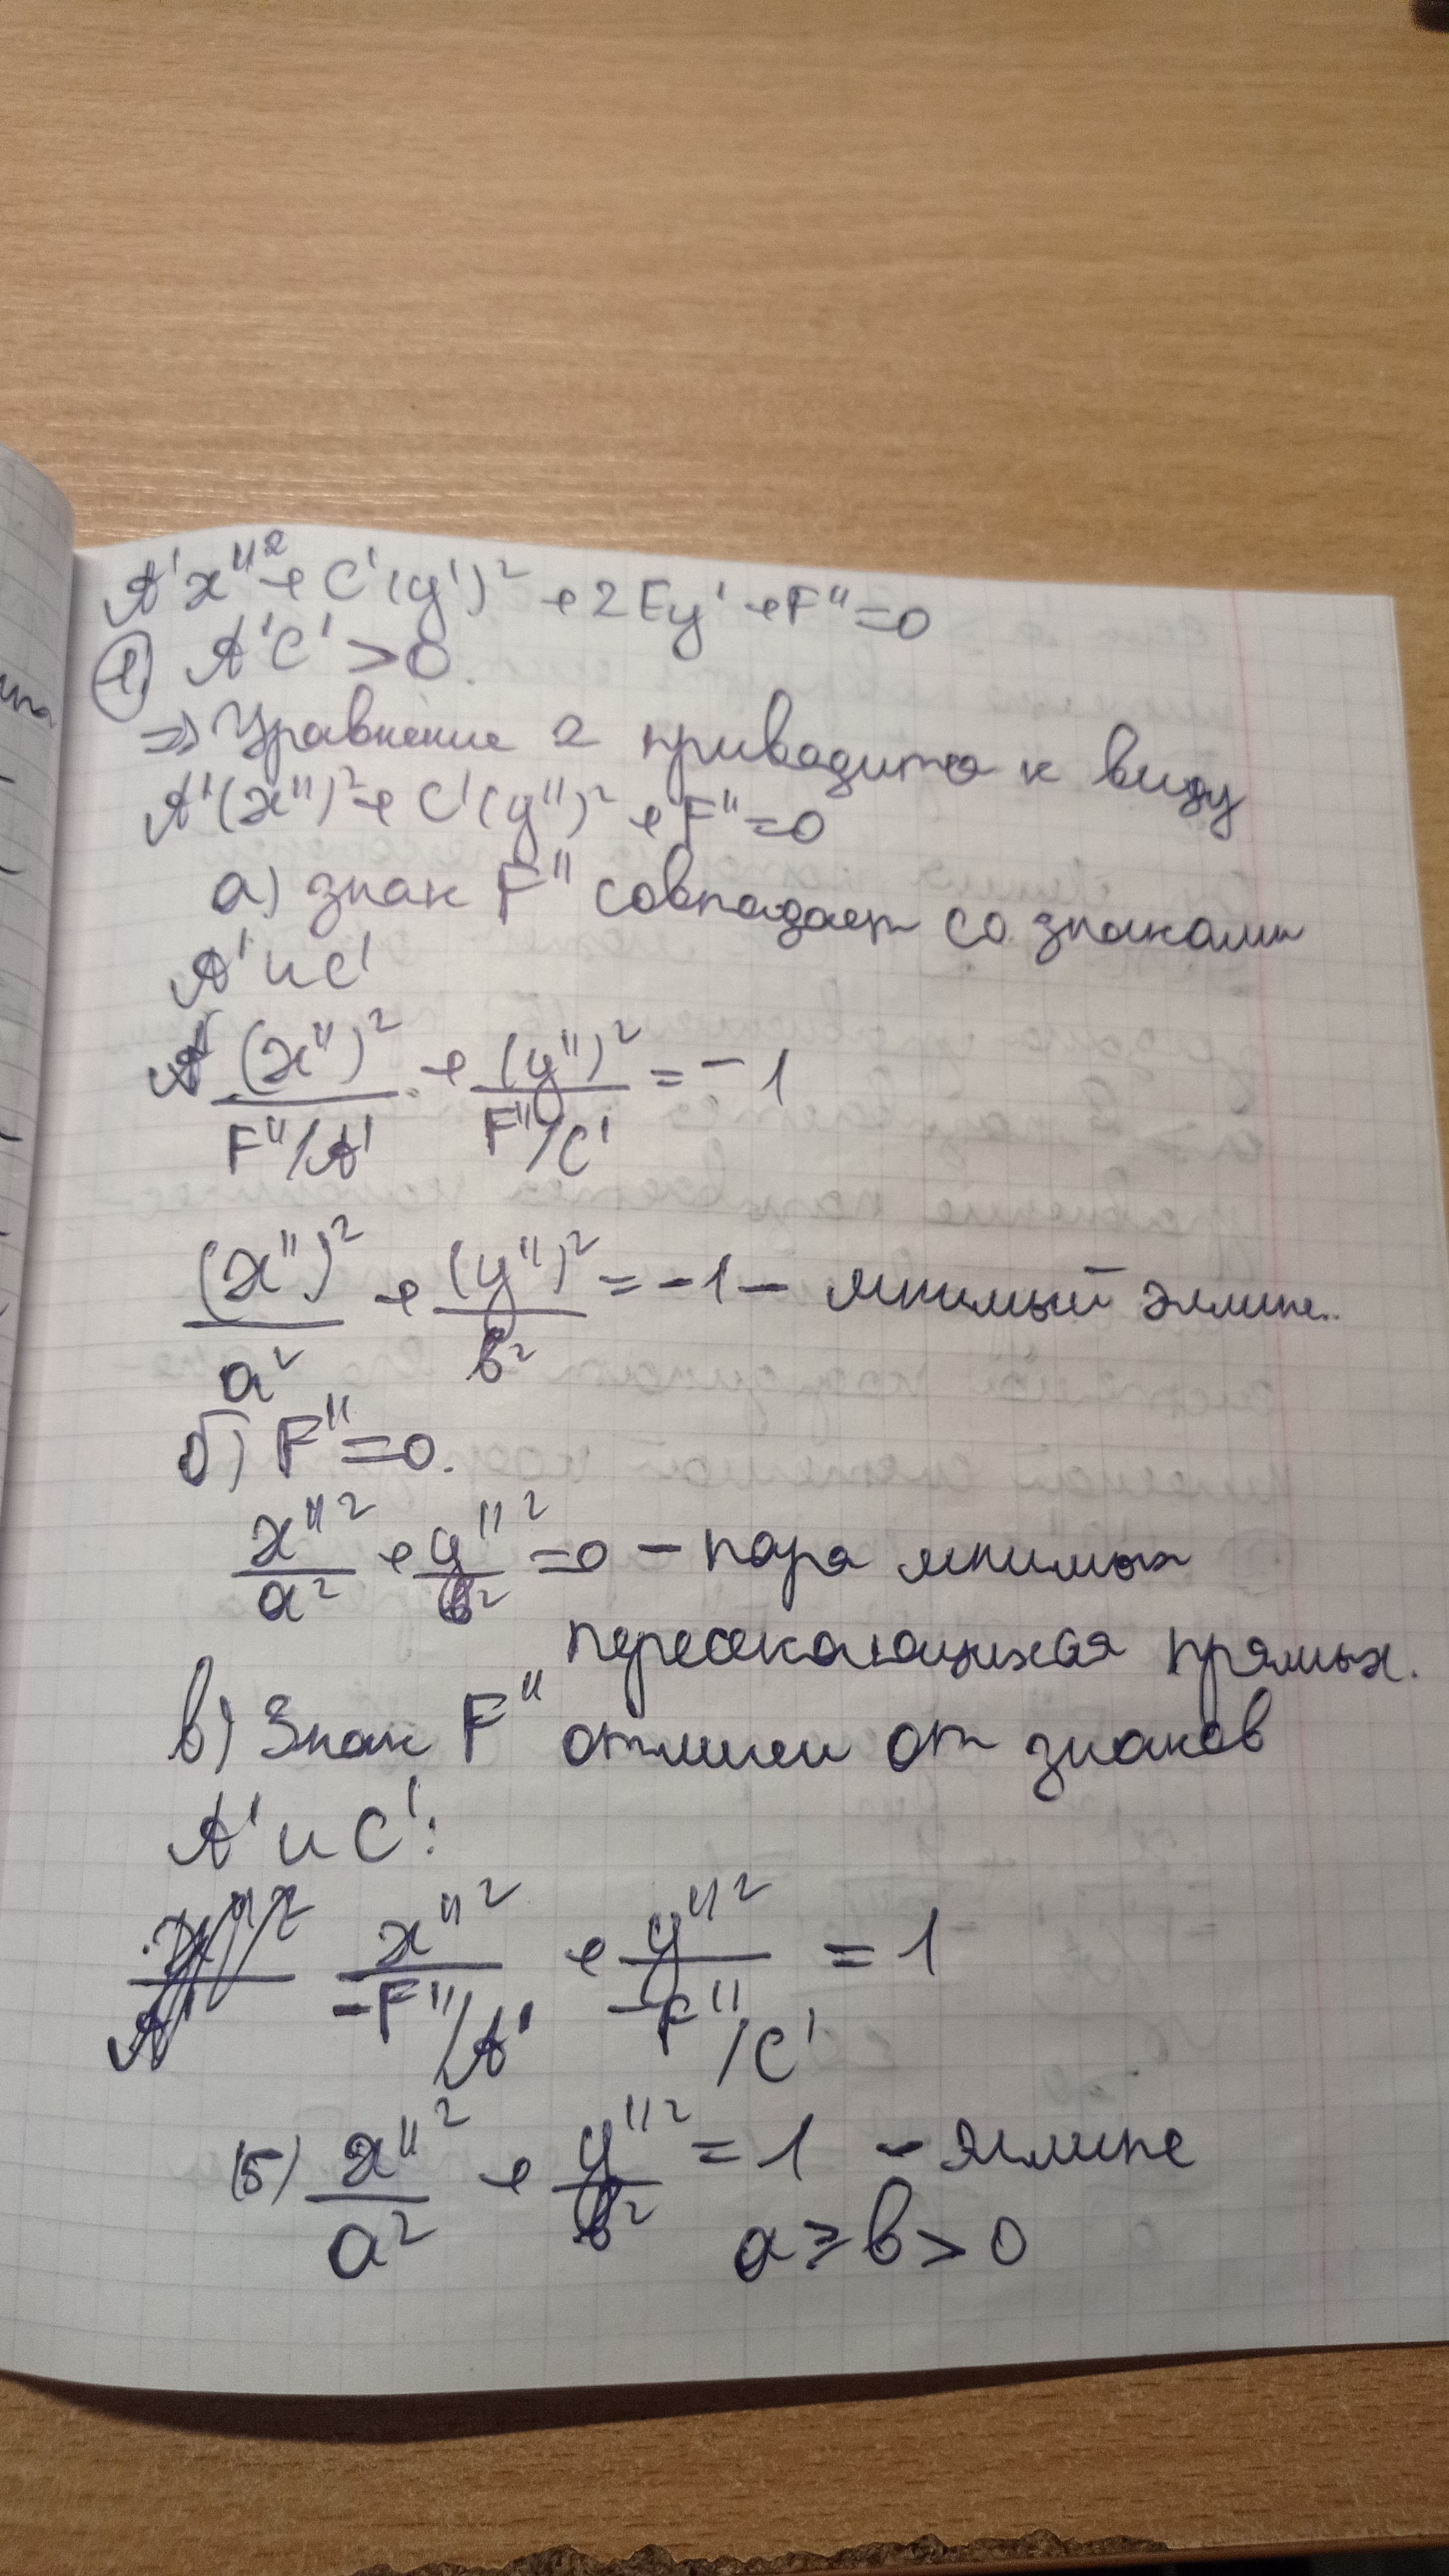 A'x''² + C'(y')² + 2Ey' + F'' = 0
1. A'C' > 0.
=> Уравнение 2 приводится к виду
A'(x'')² + C'(y'')² + F'' = 0
а) знак F'' совпадает со знаками
A' и C'
(x'')² / F''/A' + (y'')² / F''/C' = -1
(x'')² / a² + (y'')² / b² = -1 - мнимый эллипс.
б) F'' = 0.
x''² / a² + y''² / b² = 0 - пара мнимых
пересекающихся прямых.
в) Знак F'' отличен от знаков
A' и C':
x''² / -F''/A' + y''² / -F''/C' = 1
(5) x''² / a² + y''² / b² = 1 - эллипс
a ≥ b > 0